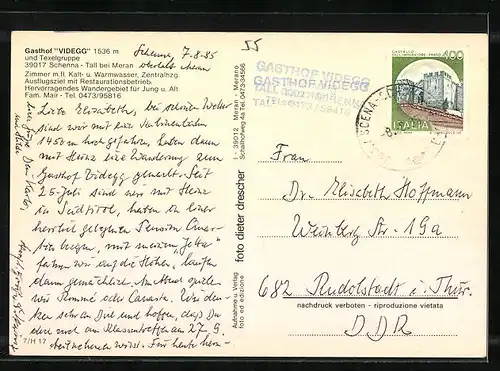 Gasthof "VIDEGG" 1536 m
und Texelgruppe
39017 Schenna - Tall bei Meran
Zimmer m.fl. Kalt- u. Warmwasser, Zentralhzg.
Ausflugsziel mit Restaurationsbetrieb.
Hervorragendes Wandergebiet für Jung u. Alt
Fam. Mair - Tel. 0473/95816
Schenna, 7.8.85
oberhalb Meran
Liebe Elisabeth, bei schönem Wetter
sind wir mit der
1450 m hoch gefahren, haben dann
mit Heinz eine Wanderung zum
Gasthof Videgg gemacht. Seit
25. Juli sind wir mit Heinz
in Südtirol, haben in einer
herrlich gelegenen Pension
bergen, mit meinem "Jetta"
fahren wir auf die Höhen, laufen
dann gemächlich. Am Abend spielen
wir Rommé oder Canasta. Wir den-
ken schon an Dich und hoffen, daß Du
auch am Klassentreffen am 27. 9.
teilnehmen wirst. Für heute
7/H 17
I - 39012 Meran - Merano
Schafferweg 4a Tel. 0473/34566
foto dieter drescher
Aufnahme u. Verlag
foto ed edizione
55
GASTHOF VIDEGG
GASTHOF VIDEGG
CASTELLO
400
ITALIA
SCENA
Frau
Dr. Elisabeth Hoffmann
Weinberg Str. 19a
682 Rudolstadt i. Thür.
nachdruck verboten - riproduzione vietata
DDR